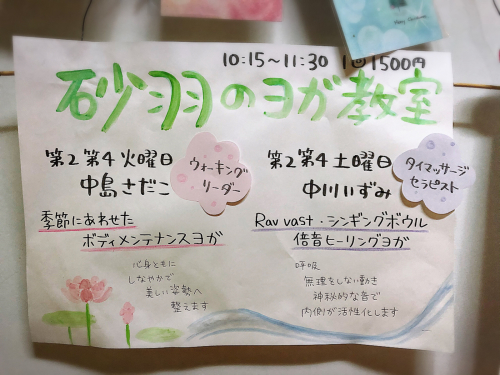 10:15〜11:30 1回1500円
砂羽のヨガ教室
第2第4火曜日
中島さだこ
ウォーキング
リーダー
季節にあわせた
ボディメンテナンスヨガ
心身ともに
しなやかで
美しい姿勢へ
整えます
第2第4土曜日
中川いずみ
タイマッサージ
セラピスト
Rav vast・シンギングボウル
倍音ヒーリングヨガ
呼吸
無理をしない動き
神秘的な音で
内側が活性化します